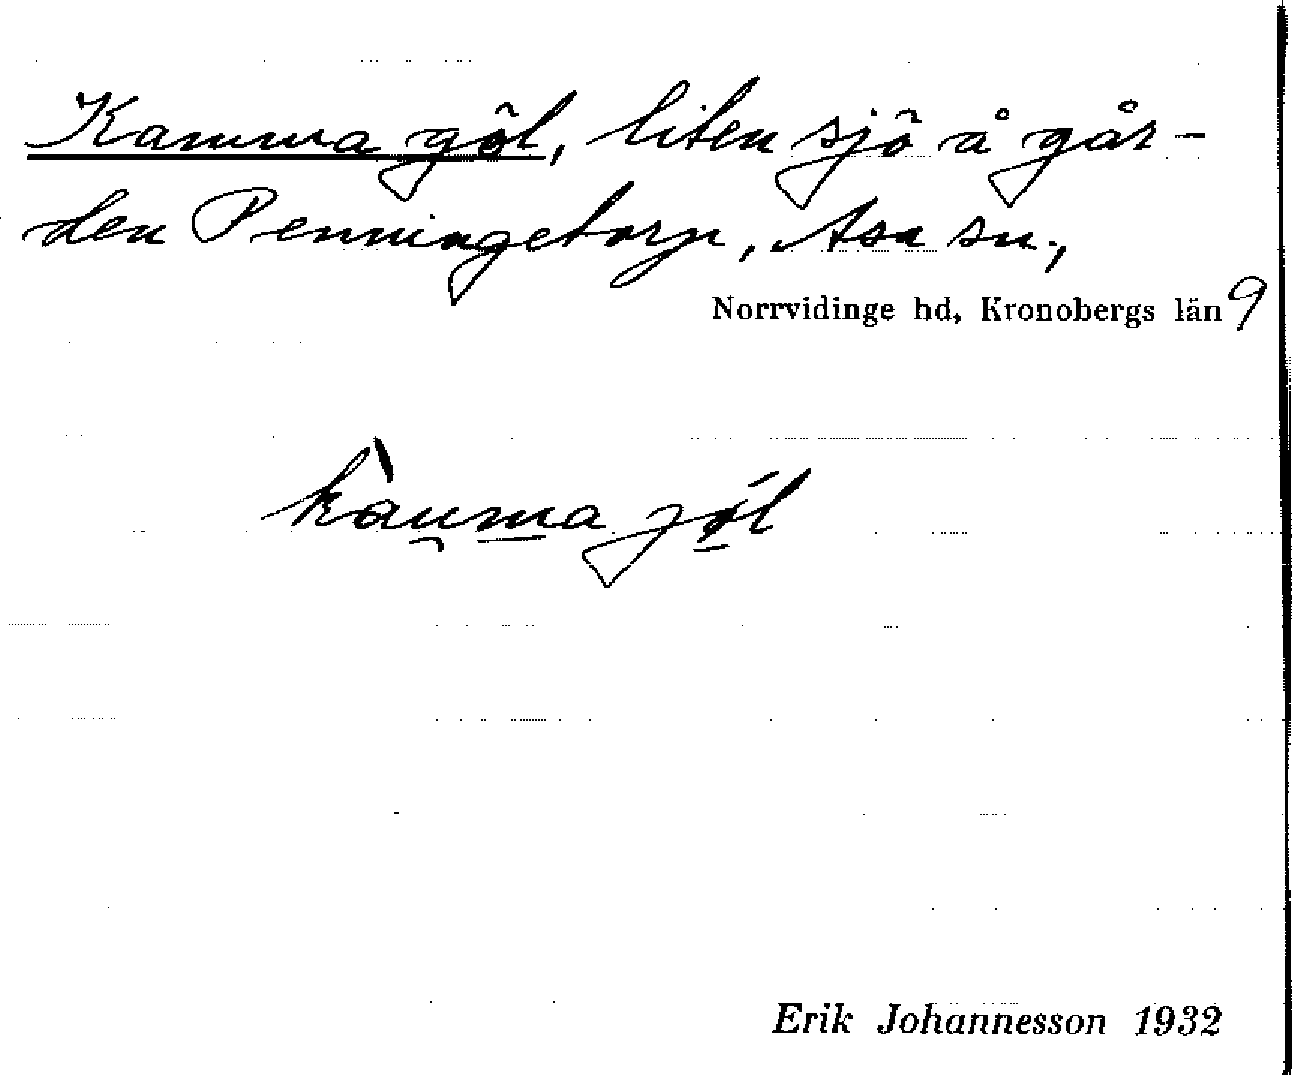 Kamma göl, liten sjö å går-
den Penningetorp, Asa sn.,
Norrvidinge hd, Kronobergs län 9
kàu̯m̲a jǿ̲l
Erik Johannesson 1932